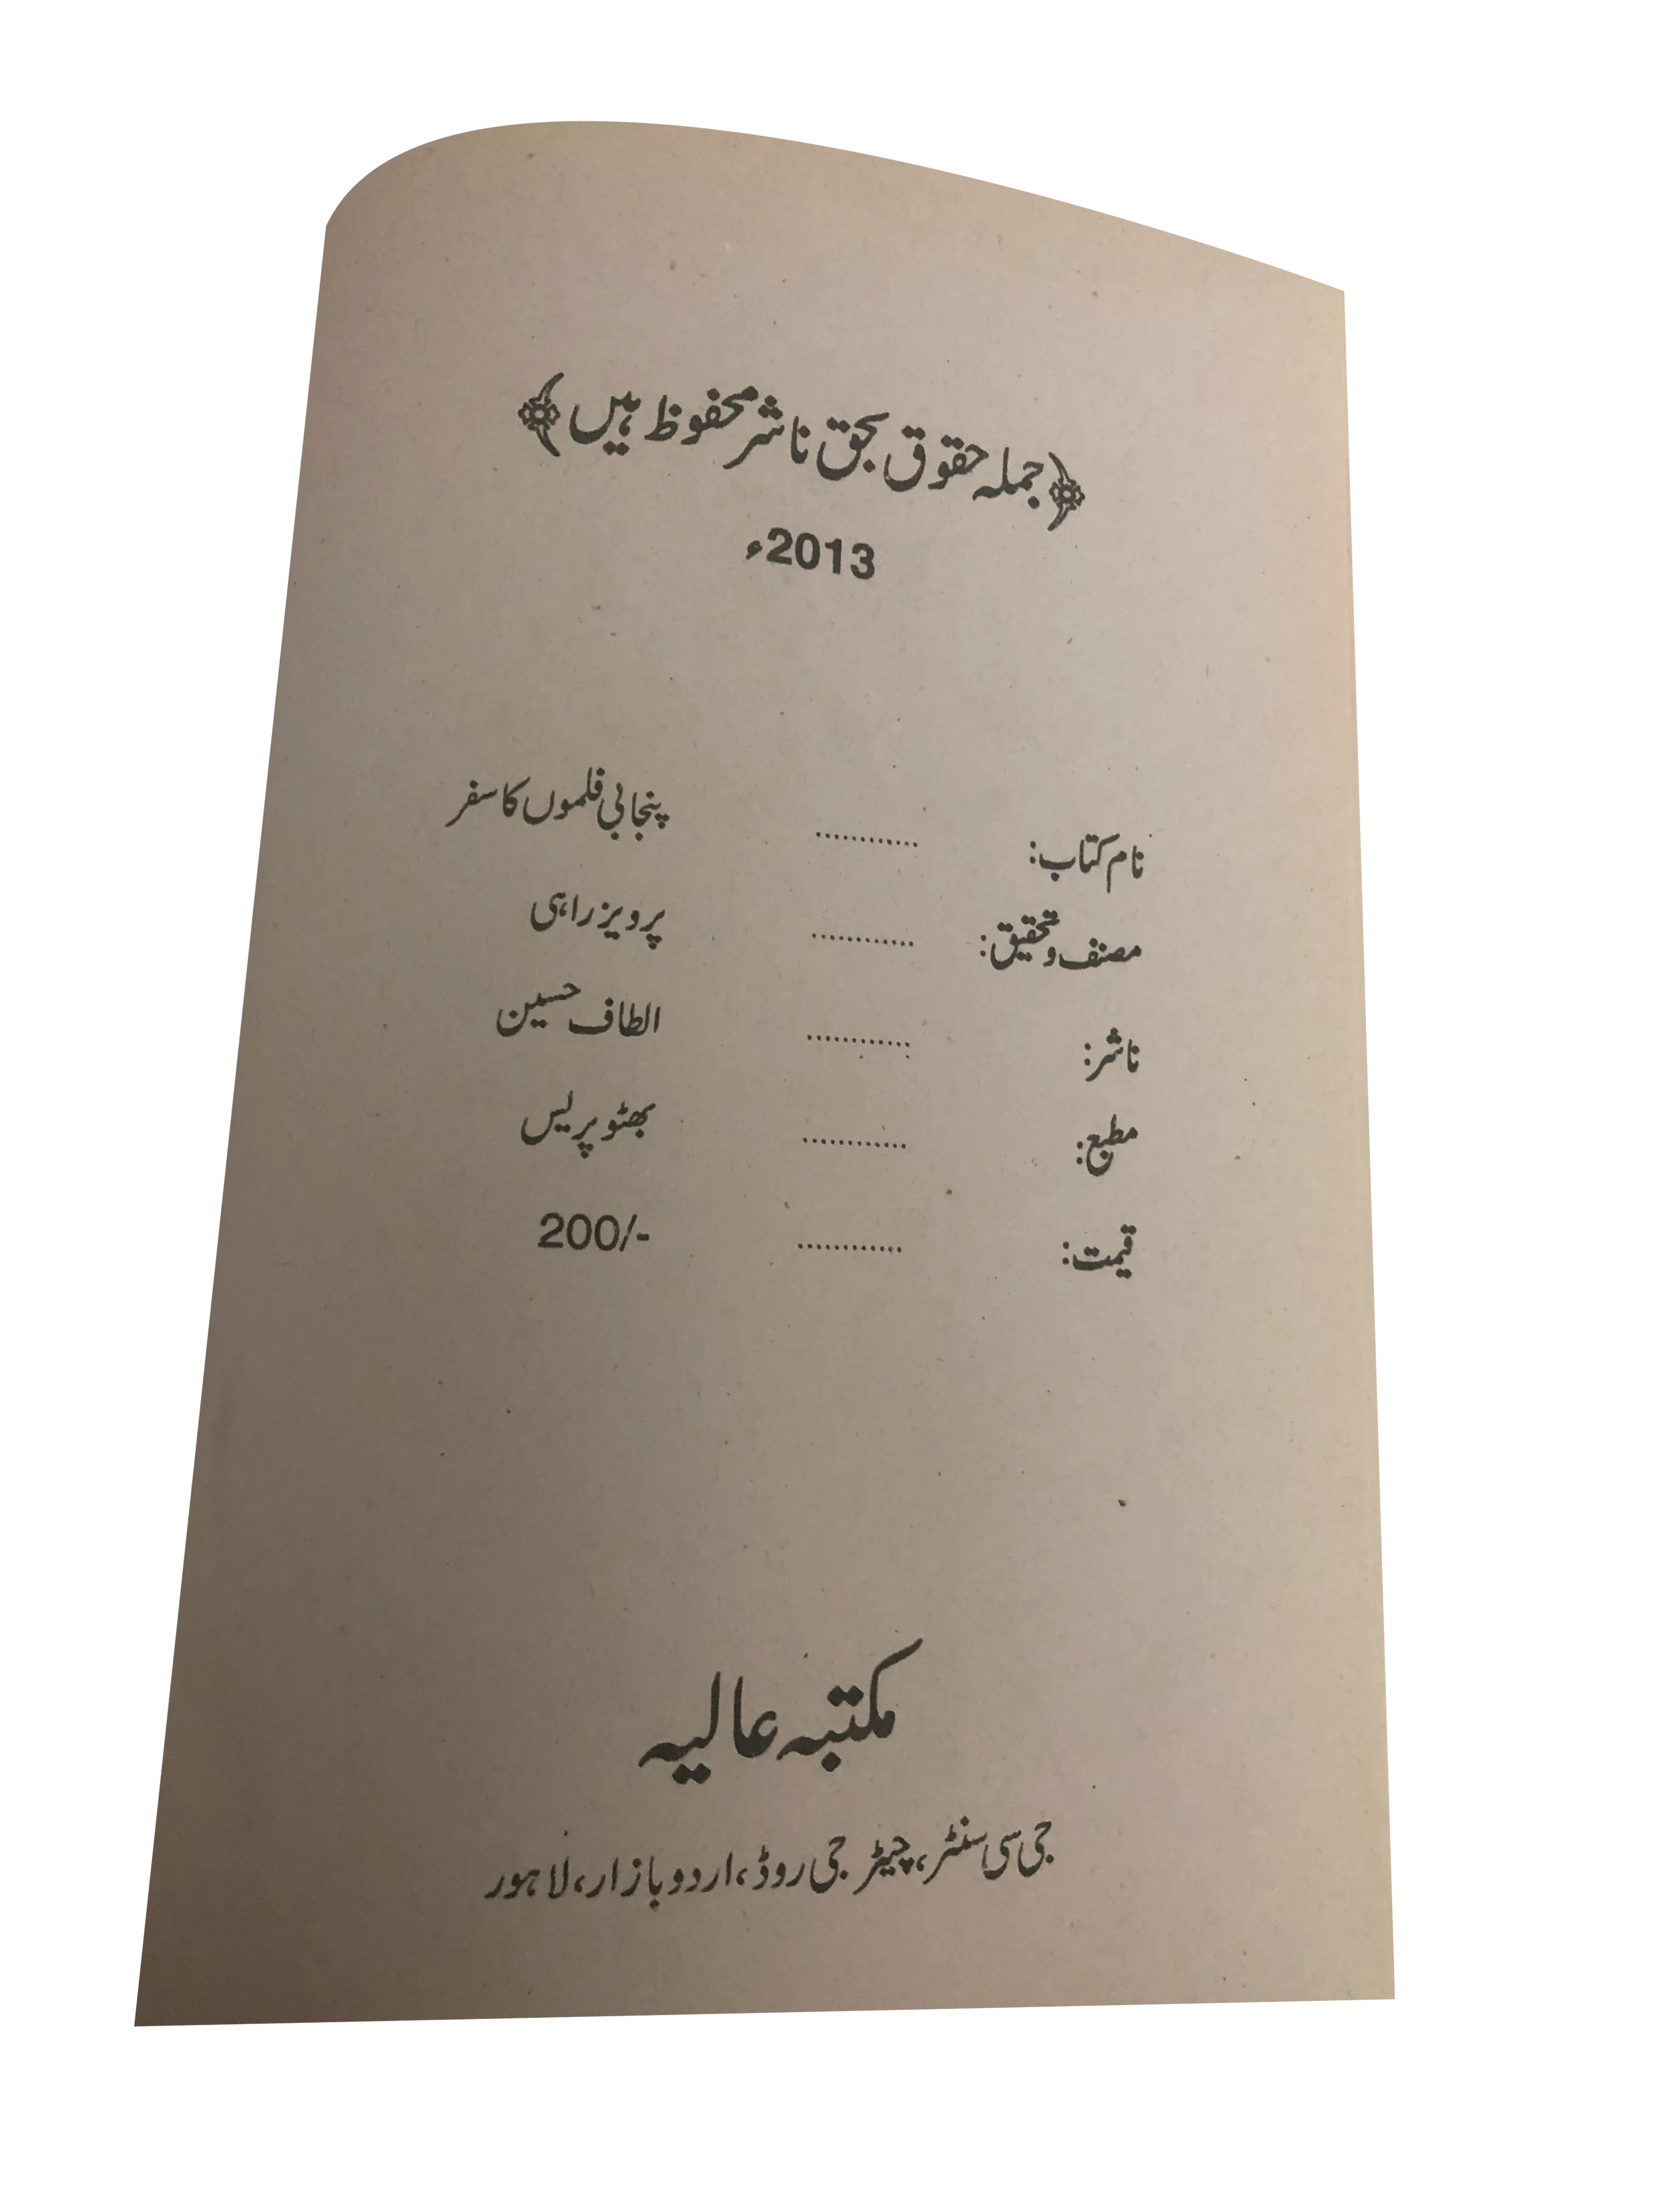 ﴿جملہ حقوق بحق ناشر محفوظ ہیں﴾
2013ء
نام کتاب: ............ پنجابی فلموں کا سفر
مصنف و تحقیق: ............ پرویز راہی
ناشر: ............ الطاف حسین
مطبع: ............ بھٹو پریس
قیمت: ............ 200/-
مکتبہ عالیہ
جی سی سنٹر، چیٹر جی روڈ، اردو بازار، لاہور